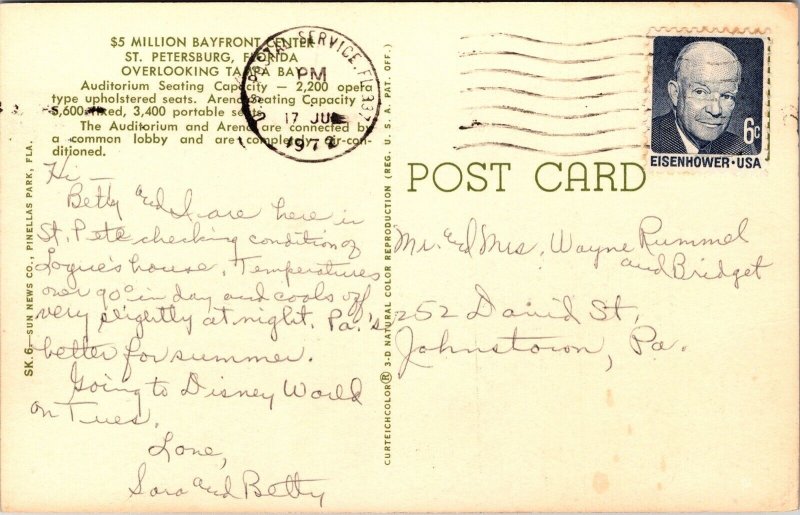 $5 MILLION BAYFRONT CENTER
ST. PETERSBURG, FLORIDA
OVERLOOKING TAMPA BAY
Auditorium Seating Capacity — 2,200 opera
type upholstered seats. Arena Seating Capacity
5,600 fixed, 3,400 portable seats.
The Auditorium and Arena are connected by
a common lobby and are completely air-con-
ditioned.
Hi —
Betty and I are here in
St. Pete checking condition of
Logue's house. Temperatures
over 90° in day and cools off
very slightly at night. Pa.'s
better for summer.
Going to Disney World
on Tues.
Love,
Sara and Betty
SK.6— SUN NEWS CO., PINELLAS PARK, FLA.
CURTEICHCOLOR® 3-D NATURAL COLOR REPRODUCTION (REG. U.S.A. PAT. OFF.)
POSTAL SERVICE, FL 337
PM
17 JUN
1972
6c
EISENHOWER·USA
POST CARD
Mr. and Mrs. Wayne Rummel
and Bridget
252 David St.
Johnstown, Pa.